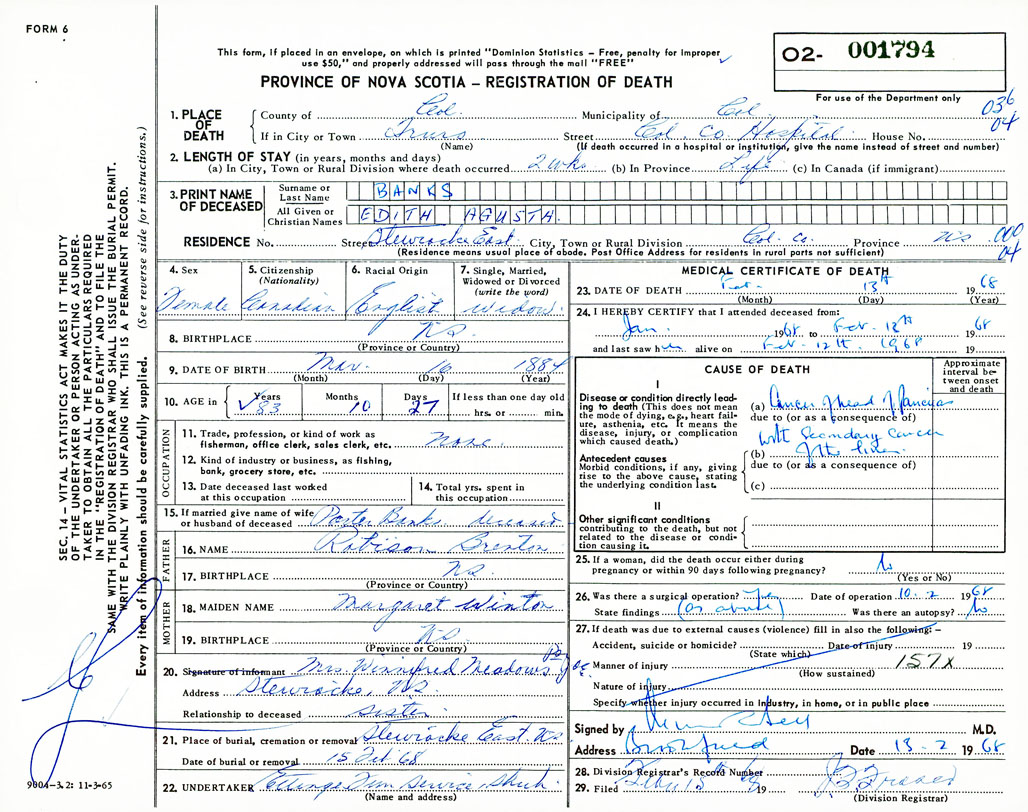 FORM 6
This form, if placed in an envelope, on which is printed "Dominion Statistics – Free, penalty for improper
use $50," and properly addressed will pass through the mail "FREE"
O2- 001794
PROVINCE OF NOVA SCOTIA – REGISTRATION OF DEATH
For use of the Department only
036
04
1. PLACE OF DEATH
County of Col. Municipality of Col.
If in City or Town Truro Street Col. Co. Hospital House No.
(Name) (If death occurred in a hospital or institution, give the name instead of street and number)
2. LENGTH OF STAY (in years, months and days)
(a) In City, Town or Rural Division where death occurred 2 wks (b) In Province Life (c) In Canada (if immigrant)
3. PRINT NAME OF DECEASED
Surname or Last Name BANKS
All Given or Christian Names EDITH AGUSTA.
RESIDENCE No. Street Stewiacke East City, Town or Rural Division Col. Co. Province NS 000
04
(Residence means usual place of abode. Post Office Address for residents in rural parts not sufficient)
4. Sex Female
5. Citizenship (Nationality) Canadian
6. Racial Origin English
7. Single, Married, Widowed or Divorced (write the word) widow.
8. BIRTHPLACE NS.
(Province or Country)
9. DATE OF BIRTH Mar. 16 1884
(Month) (Day) (Year)
10. AGE in Years 83 Months 10 Days 27 If less than one day old
hrs. or min.
OCCUPATION
11. Trade, profession, or kind of work as
fisherman, office clerk, sales clerk, etc. none
12. Kind of industry or business, as fishing,
bank, grocery store, etc.
13. Date deceased last worked
at this occupation
14. Total yrs. spent in
this occupation
15. If married give name of wife
or husband of deceased Porter Banks deceased
FATHER
16. NAME Robison Brenton
17. BIRTHPLACE NS.
(Province or Country)
MOTHER
18. MAIDEN NAME Margaret Winton
19. BIRTHPLACE NS.
(Province or Country)
20. Signature of informant Mrs. Winnifred Meadows
Address Stewiacke, NS.
Relationship to deceased sister
21. Place of burial, cremation or removal Stewiacke East. NS
Date of burial or removal 15 Feb 68
22. UNDERTAKER
(Name and address)
MEDICAL CERTIFICATE OF DEATH
23. DATE OF DEATH Feb. 13th 1968
(Month) (Day) (Year)
24. I HEREBY CERTIFY that I attended deceased from:
Jan. 1968 to Feb. 12th 1968
and last saw her alive on Feb. 12th. 1968 19
CAUSE OF DEATH
Approximate interval between onset and death
I
Disease or condition directly leading to death (This does not
mean the mode of dying, e.g., heart failure, asthenia, etc. It means the
disease, injury, or complication
which caused death.)
(a) Cancer of head of Pancreas
due to (or as a consequence of)
with Secondary Cancer
(b) of the liver.
due to (or as a consequence of)
(c)
Antecedent causes
Morbid conditions, if any, giving
rise to the above cause, stating
the underlying condition last.
II
Other significant conditions
contributing to the death, but not
related to the disease or condition causing it.
25. If a woman, did the death occur either during
pregnancy or within 90 days following pregnancy? No
(Yes or No)
26. Was there a surgical operation? Yes Date of operation 10-2 1968
State findings (as above) Was there an autopsy? No
27. If death was due to external causes (violence) fill in also the following: –
Accident, suicide or homicide? Date of injury 19
(State which)
Manner of injury 157X
(How sustained)
Nature of injury
Specify whether injury occurred in Industry, in home, or in public place
Signed by M.D.
Address Brookfield Date 13-2 1968
28. Division Registrar's Record Number
29. Filed 19
(Division Registrar)
SEC. 14 – VITAL STATISTICS ACT MAKES IT THE DUTY
OF THE UNDERTAKER OR PERSON ACTING AS UNDERTAKER TO OBTAIN ALL THE PARTICULARS REQUIRED
IN THE "REGISTRATION OF DEATH" AND TO FILE THE
SAME WITH THE DIVISION REGISTRAR WHO SHALL ISSUE THE BURIAL PERMIT.
WRITE PLAINLY WITH UNFADING INK. THIS IS A PERMANENT RECORD.
Every item of information should be carefully supplied. (See reverse side for instructions.)
9004-3.2: 11-3-65